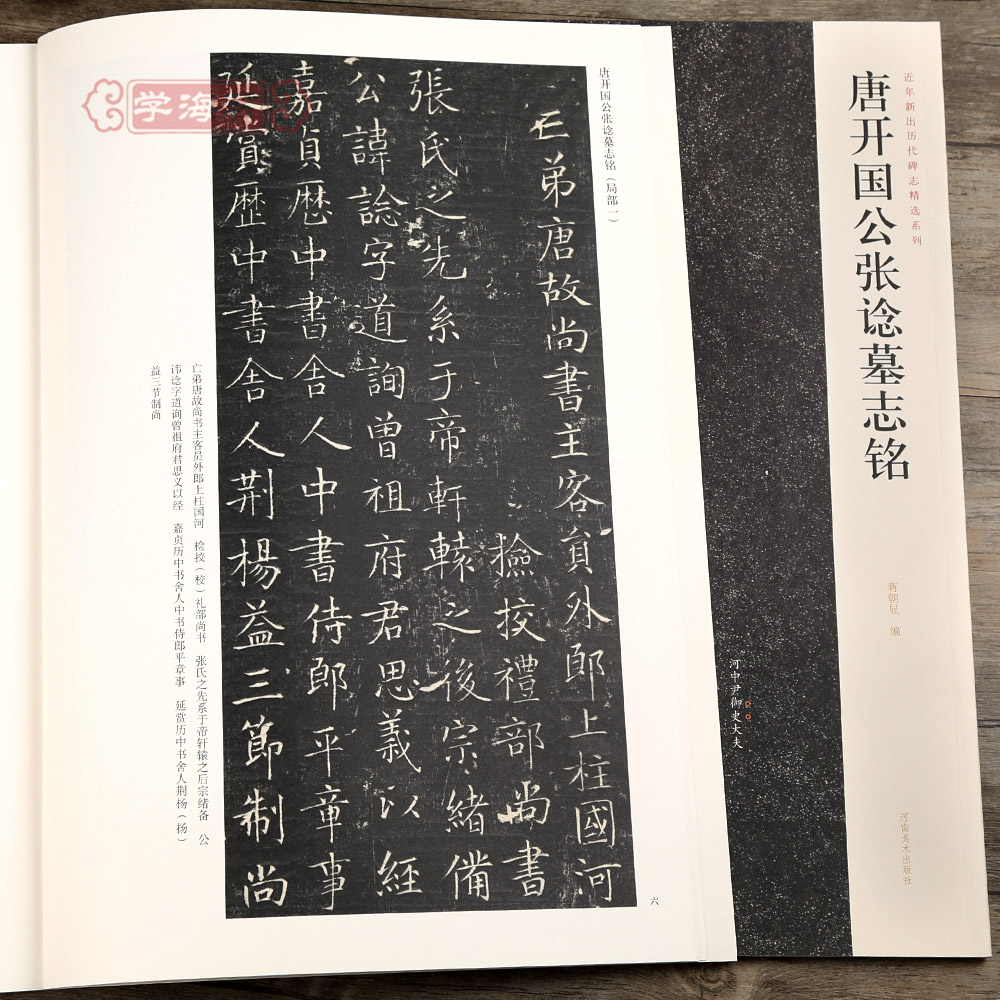 近年新出历代碑志精选系列
唐开国公张谂墓志铭
蒋朝显 编
河南美术出版社
河中尹御史大夫
唐开国公张谂墓志铭（局部一）
亡弟唐故尚書主客員外郎上柱國河
撿挍禮部尚書
張氏之先系于帝軒轅之後宗緒備
公諱諗字道詢曾祖府君思義以經
嘉貞歷中書舍人中書侍郎平章事
延賞歷中書舍人荆楊益三節制尚
亡弟唐故尚书主客员外郎上柱国河 检挍（校）礼部尚书 张氏之先系于帝轩辕之后宗绪备 公
讳谂字道询曾祖府君思义以经 嘉贞历中书舍人中书侍郎平章事 延赏历中书舍人荆杨（扬）
益三节制尚
六
学海